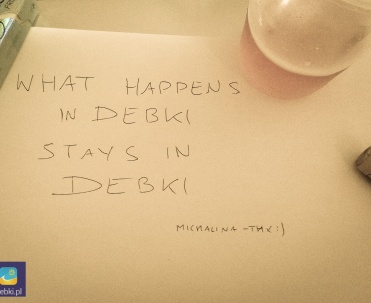 WHAT HAPPENS
IN DEBKI
STAYS IN
DEBKI
MICHALINA -THX:)
ebki.pl